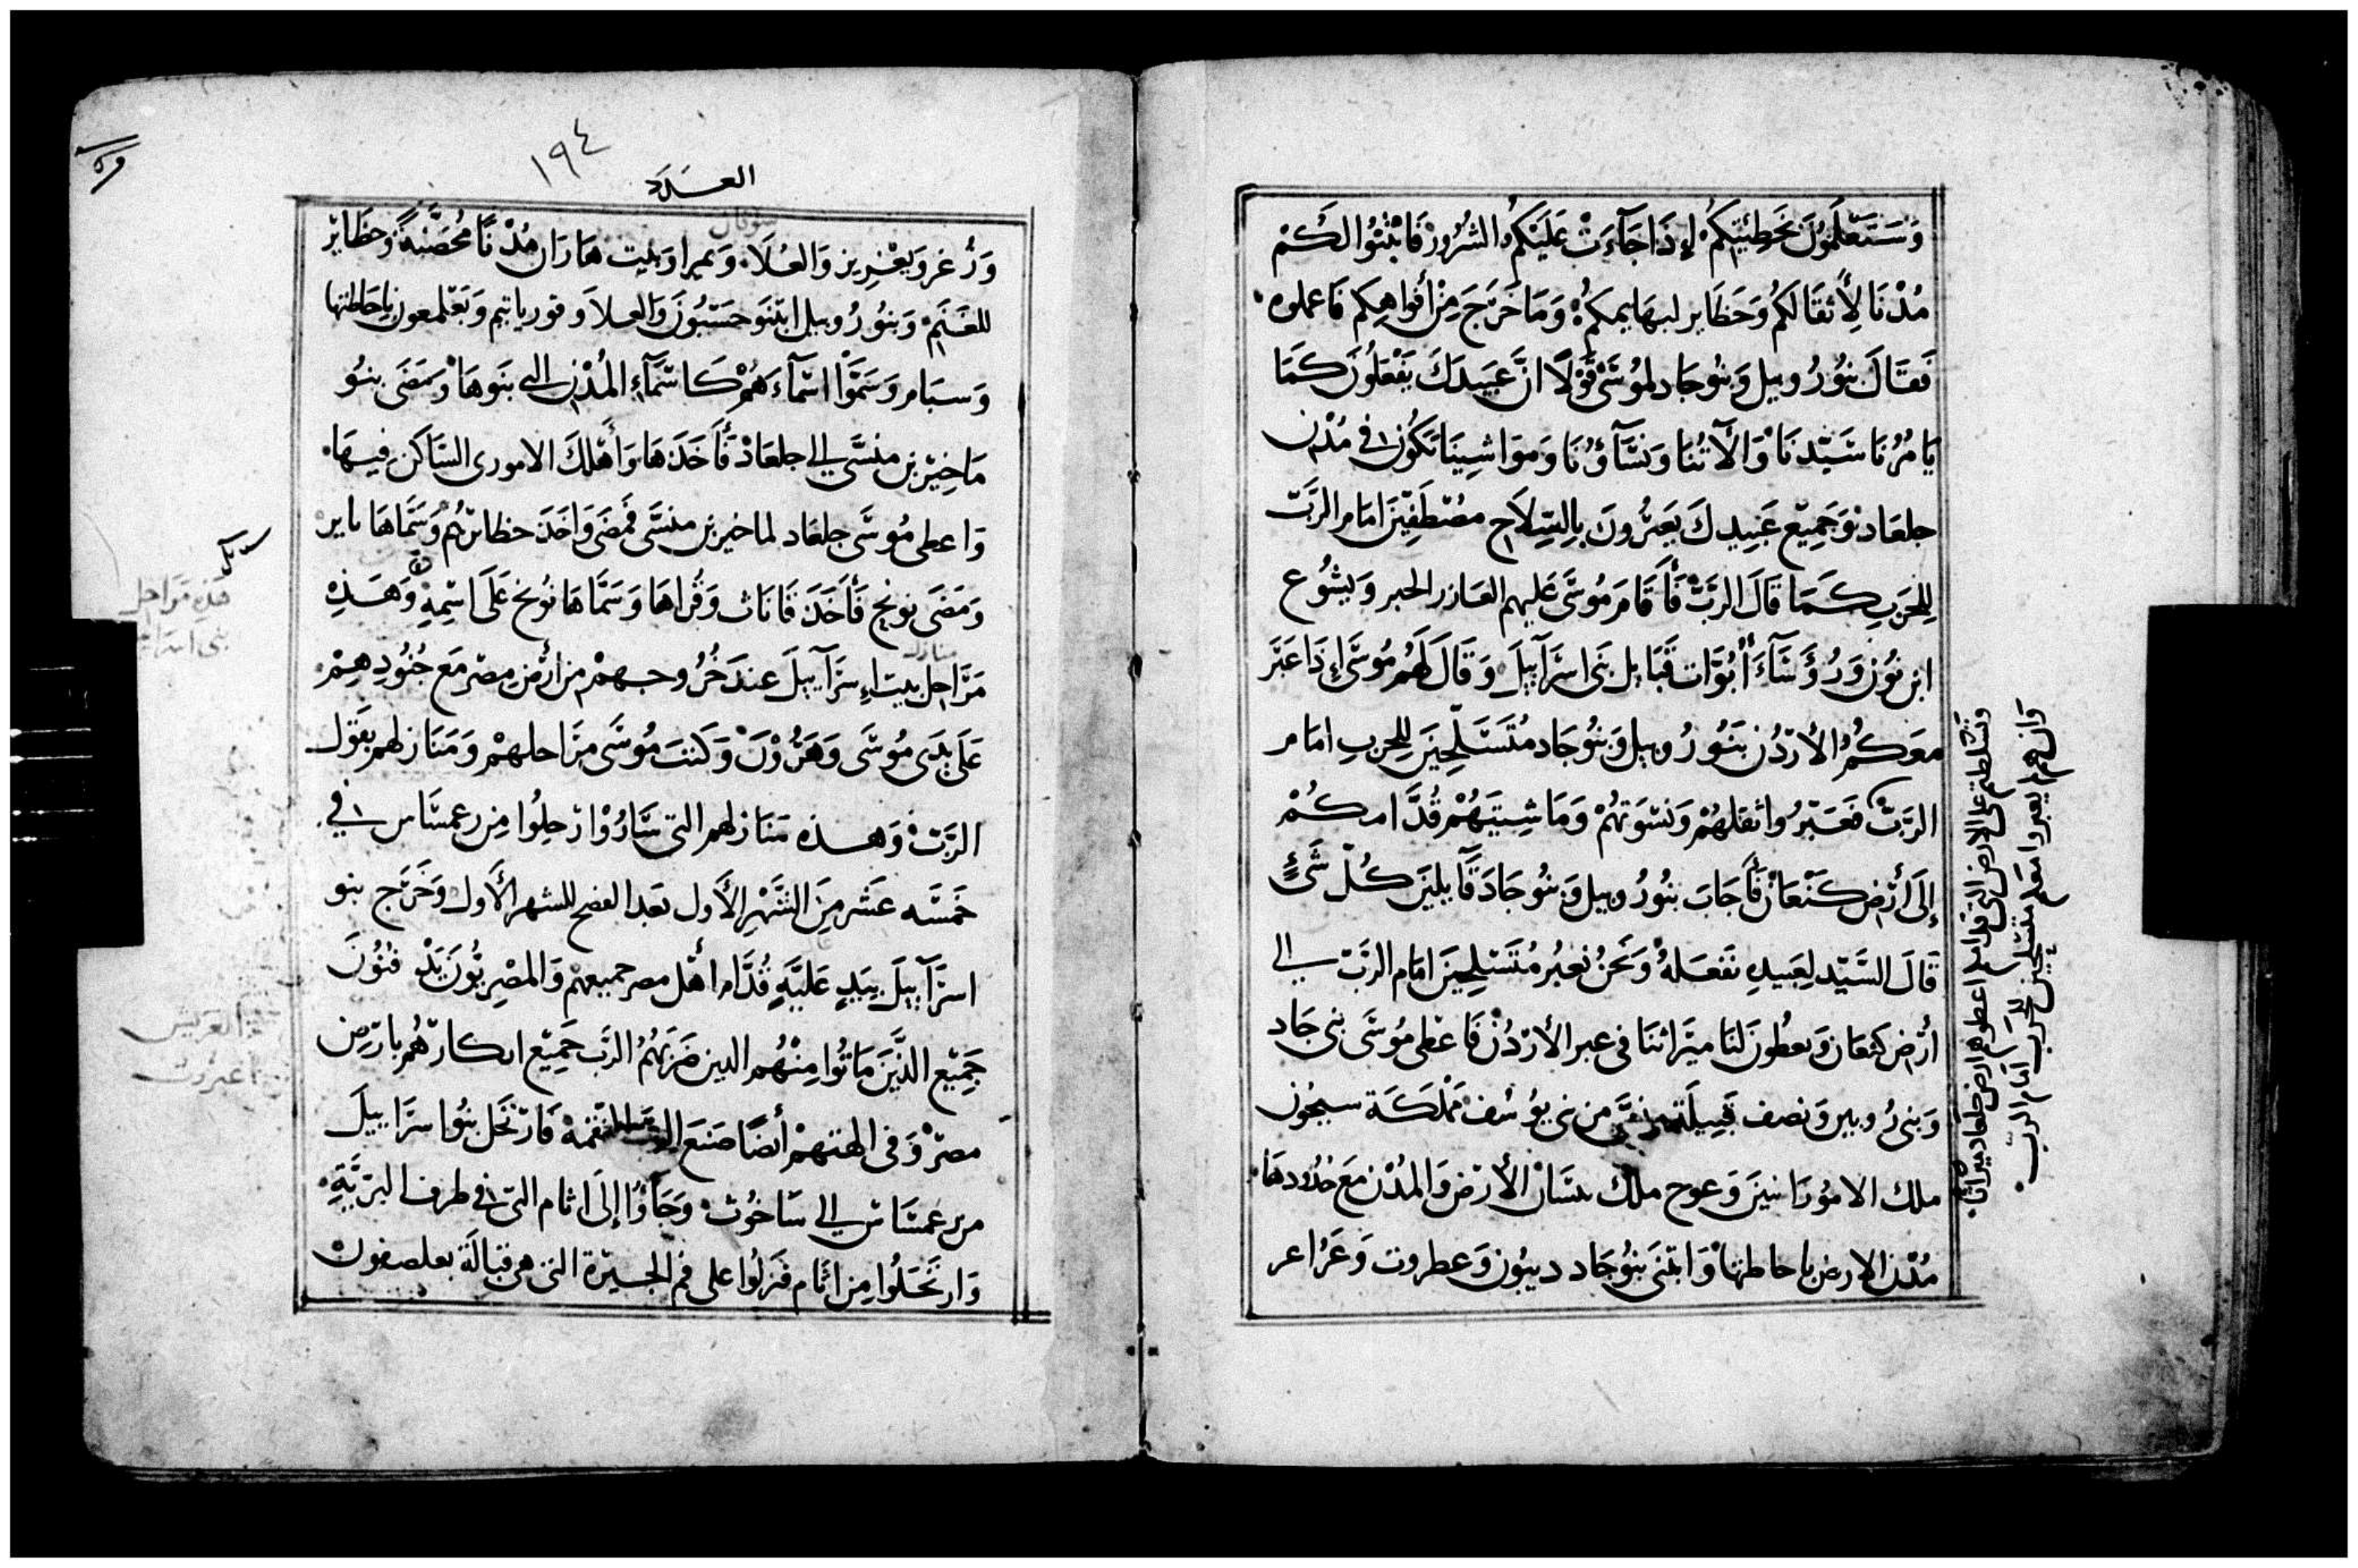 وَسَتَعْلَمُونَ بخَطِيَّتِكُمْ إِذَا جَآءَتْ عَلَيْكُمُ الشُرُورْ فَابْنُوا لَكُمْ
مُدْنًا لِأَثقَالكُمْ وَحَظَاير لبهَايمكمُْ وَمَا خَرَجَ مِنْ أَفْواهِكم فَاعملوه
فَقَالَ بنُو رُوبيل وَبنُو جَاد لموُسَى قَوْلًا انَّ عَبيدكَ يَفْعَلُونَ كَمَا
يَامُرُنَا سَيّدنَا وَالآتُنَا وَنِسَآؤُنَا وَموَاشِينَا تَكُون فى مُدْن
جلعَاد وَجَمِيع عَبيدكَ يَعبرُونَ بِالسِّلَاح مصْطَفِّينَ امَام الرَّبّ
لِلحَربِ كَمَا قَالَ الرَبّْ فَأَقَامَ مُوسَى عَليهم العَازر الحبر وَيشُوع
ابن نوُن وَرُؤَسَآءَ أُبُوَّات قَبَايل بَنى اسرَآييلَ وَقَالَ لَهُم مُوسَى إِذَا عَبَر
معَكُمُ الأردُن بَنُو رُوبيل وَبنُو جَاد مُتَسَلّحِينَ لِلحربِ امَام
الرَبّْ فعَبَرُوا ثقلهُمْ وَنسْوَتهُمْ وَمَاشِيتَهُمْ قُدَّامكُمْ
إِلَى أَرْض كَنْعَانْ فَأَجَابَ بنُو رُوبيل وَبنُو جَادَ قَآيلينَ كُلّ شَئٍ
قَالَ السَيّد لِعَبيدِه نَفعَلهُ وَنَحنُ نَعبُر مُتَسَلّحِينَ امَام الرَبّ الى
أرْض كنعَان وَتعطُونَ لنَا ميرَاثنَا فى عبر الأرْدُنْ فَاعْطى مُوسَى بنى جَاد
وَبنى رُوبيل وَنصف قَبِيلَة منسَّى من بنى يوُسُف مَمْلكَة سيحُون
ملك الاموُرَانيينَ وَعوج ملك بيسَان الأَرْض وَالمُدْن مَعَ حُدُودهَا
مُدْن الارض باحَاطتهَا وَابتَنى بنُو جَاد ديبُون وَعطروت وَعَرُاعر
وَنسَلطتم على الارض التى قدامكم اعطوهم ارض جلعاد ميراثا
وَان لم يعبروا معَكم متسلحين للحَرب امَام الربّ
العَدَد
١٩٤
للغَنَم وَبنُو رُوبيل ابتنَو حَسْبُونَ وَالعلا وقورياتيم وَبَعْلمعون باحَاطتها
وَسبَام وَسَمَّوْا اسْمآءَهُمْ كَاسْمَآءِ المُدْن التى بنَوهَا وَمَضَى بنُو
مَاخِير بن منسَّى الى جلعَادْ فَأَخَذَهَا وَأَهْلكَ الامورى السَّاكن فيهَا
وَاعطى مُوسَى جلعَاد لماخير بن منسَّى فَمضَى وَاخَذَ حظائرهُمْ وَسَمَّاهَا ياير
وَمَضَى نوبخ فَأَخَذَ قَاناث وَقُرَاهَا وَسَمَّاهَا نُوبخ عَلَى اسْمِهِ وَهَذِهِ
مَرَاحل بيت اِسرَآييلَ عندَ خُرُوجهمْ من أَرْض مِصْر مَع جُنُودِهِمْ
عَلَى يَدَى مُوسَى وَهَرُوْنَ وَكتبَ مُوسَى مرَاحلهمْ وَمَنَازلهم بقَوْل
الرَبّْ وَهذه مَنَازلهم التى سَارُوْا رحلُوا مِن رعمسَاس فى
خَمسَه عَشر مِنَ الشَهْرِ الأَول بَعد الفصح للشهر الأَول وَخَرَج بنو
اسرَآييلَ بيَدٍ عَليَّهٍ قُدَّام أَهْل مصر جميعهمْ وَالمصْريُّونَ يَدْفنُونَ
جَمِيع الذَّينَ مَاتُوا مِنْهُم الذين ضَربَهُمُ الرَب جَمِيع ابكَارهُم بأرض
مصْرْ وَفى الهتهمْ أيضًا صَنَعَ الرَب النقمهْ فَارْتَحَل بنُو اسرَاييلَ
من رعمسَاس الى سَاخُوت وَجَآوُا إِلَى اثام التى فى طرف البرّيَّةِ
وَارتَحَلُوا مِن اثَام فنَزلُوا على فم الجيرَة التى هى قبَالَة بعلصفون
منازل
هَذِه مَرَاحل
بنى اسرا